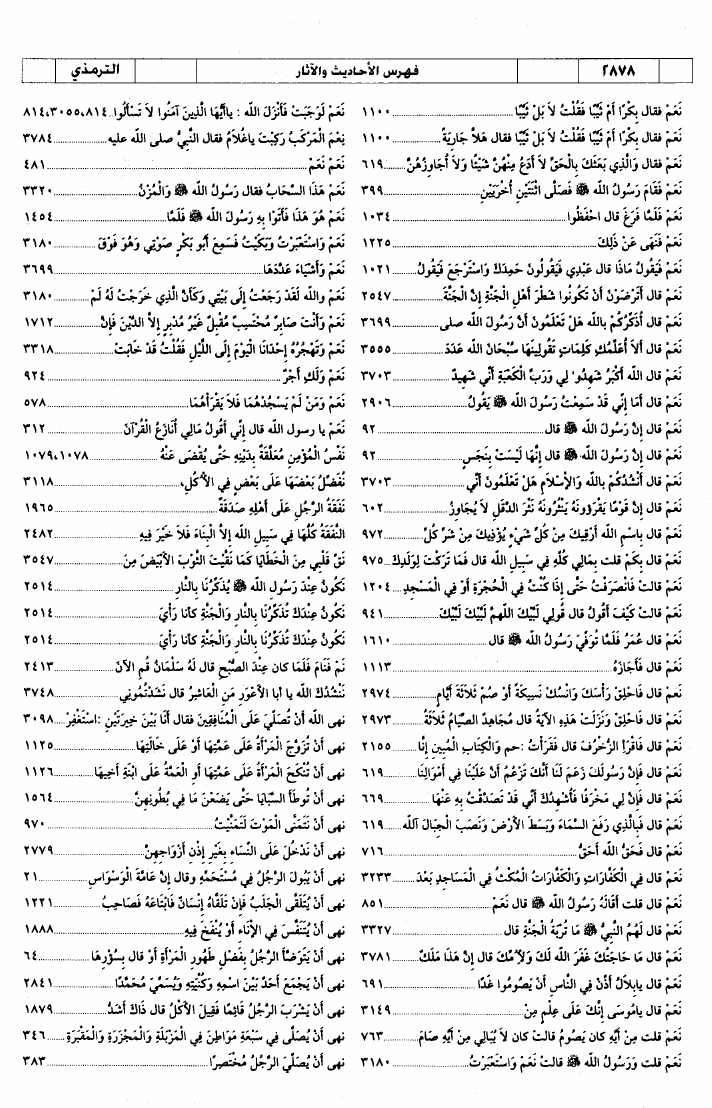 ٢٨٧٨
فهرس الأحاديث والآثار
الترمذي
نَعَمْ فقال بِكْرًا أَمْ ثَيِّبًا فَقُلْتُ لاَ بَلْ ثَيِّبًا ... ١١٠٠
نَعَمْ فقال بِكْرًا أَمْ ثَيِّبًا فَقُلْتُ لاَ بَلْ ثَيِّبًا فقال هَلاَّ جَارِيَةً ... ١١٠٠
نَعَمْ فقال وَالَّذِي بَعَثَكَ بِالْحَقِّ لاَ أَدَعُ مِنْهُنَّ شَيْئًا وَلاَ أُجَاوِزُهُنَّ ... ٦١٩
نَعَمْ فَقَامَ رَسُولُ الله ﷺ فَصَلَّى اثْنَتَيْنِ أُخْرَيَيْنِ ... ٣٩٩
نَعَمْ فَلَمَّا فَرَغَ قال احْفَظُوا ... ١٠٣٤
نَعَمْ فَنَهَى عَنْ ذَلِكَ ... ١٢٢٥
نَعَمْ فَيَقُولُ مَاذَا قال عَبْدِي فَيَقُولُونَ حَمِدَكَ وَاسْتَرْجَعَ فَيَقُولُ ... ١٠٢١
نَعَمْ قال أَتَرْضَوْنَ أَنْ تَكُونُوا شَطْرَ أَهْلِ الْجَنَّةِ إِنَّ الْجَنَّةَ ... ٢٥٤٧
نَعَمْ قال أُذَكِّرُكُمْ بالله هَلْ تَعْلَمُونَ أَنَّ رَسُولَ الله صلى ... ٣٦٩٩
نَعَمْ قال أَلاَ أُعَلِّمُكِ كَلِمَاتٍ تَقُولِينَهَا سُبْحَانَ الله عَدَدَ ... ٣٥٥٥
نَعَمْ قال الله أَكْبَرُ شَهِدُوا لِي وَرَبِّ الْكَعْبَةِ أَنِّي شَهِيدٌ ... ٣٧٠٣
نَعَمْ قال أَمَا إِنِّي قَدْ سَمِعْتُ رَسُولَ الله ﷺ يَقُولُ ... ٢٩٠٦
نَعَمْ قال إِنَّ رَسُولَ الله ﷺ قال ... ٩٢
نَعَمْ قال إِنَّ رَسُولَ الله ﷺ قال إِنَّهَا لَيْسَتْ بِنَجَسٍ ... ٩٢
نَعَمْ قال أَنْشُدُكُمْ بالله وَالإِسْلاَمِ هَلْ تَعْلَمُونَ أَنِّي ... ٣٧٠٣
نَعَمْ قال إِنَّ قَوْمًا يَقْرَءُونَهُ يَنْثُرُونَهُ نَثْرَ الدَّقَلِ لاَ يُجَاوِزُ ... ٦٠٢
نَعَمْ قال بِاسْمِ الله أَرْقِيكَ مِنْ كُلِّ شَيْءٍ يُؤْذِيكَ مِنْ شَرِّ كُلِّ ... ٩٧٢
نَعَمْ قال بِكَمْ قلت بِمَالِي كُلِّهِ فِي سَبِيلِ الله قال فَمَا تَرَكْتَ لِوَلَدِكَ ... ٩٧٥
نَعَمْ قالت فَانْصَرَفْتُ حَتَّى إِذَا كُنْتُ فِي الْحُجْرَةِ أَوْ فِي الْمَسْجِدِ ... ١٢٠٤
نَعَمْ قالت كَيْفَ أَقُولُ قال قُولِي لَبَّيْكَ اللهمَّ لَبَّيْكَ لَبَّيْكَ ... ٩٤١
نَعَمْ قال عُمَرُ فَلَمَّا تُوُفِّيَ رَسُولُ الله ﷺ قال ... ١٦١٠
نَعَمْ قال فَأَجَازَهُ ... ١١١٣
نَعَمْ قال فَاحْلِقْ رَأْسَكَ وَانْسُكْ نَسِيكَةً أَوْ صُمْ ثَلاَثَةَ أَيَّامٍ ... ٢٩٧٤
نَعَمْ قال فَاحْلِقْ وَنَزَلَتْ هَذِهِ الآيَةُ قال مُجَاهِدٌ الصِّيَامُ ثَلاَثَةُ ... ٢٩٧٣
نَعَمْ قال فَاقْرَأِ الزُّخْرُفَ قال فَقَرَأْتُ: حم وَالْكِتَابِ الْمُبِينِ إِنَّا ... ٢١٥٥
نَعَمْ قال فَإِنَّ رَسُولَكَ زَعَمَ لَنَا أَنَّكَ تَزْعُمُ أَنَّ عَلَيْنَا فِي أَمْوَالِنَا ... ٦١٩
نَعَمْ قال فَإِنَّ لِي مَخْرَفًا فَأُشْهِدُكَ أَنِّي قَدْ تَصَدَّقْتُ بِهِ عَنْهَا ... ٦٦٩
نَعَمْ قال فَبِالَّذِي رَفَعَ السَّمَاءَ وَبَسَطَ الأَرْضَ وَنَصَبَ الْجِبَالَ آلله ... ٦١٩
نَعَمْ قال فَحَقُّ الله أَحَقُّ ... ٧١٦
نَعَمْ قال فِي الْكَفَّارَاتِ وَالْكَفَّارَاتُ الْمُكْثُ فِي الْمَسَاجِدِ بَعْدَ ... ٣٢٣٣
نَعَمْ قال قلت أَقَالَهُ رَسُولُ الله ﷺ قال نَعَمْ ... ٨٥١
نَعَمْ قال لَهُمُ النَّبِيُّ ﷺ مَا تُرْبَةُ الْجَنَّةِ قال ... ٣٣٢٧
نَعَمْ قال مَا حَاجَتُكَ غَفَرَ الله لَكَ وَلِأُمِّكَ قال إِنَّ هَذَا مَلَكٌ ... ٣٧٨١
نَعَمْ قال يابِلاَلُ أَذِّنْ فِي النَّاسِ أَنْ يَصُومُوا غَدًا ... ٦٩١
نَعَمْ قال يامُوسَى إِنَّكَ عَلَى عِلْمٍ مِنْ ... ٣١٤٩
نَعَمْ قلت مِنْ أَيِّهِ كان يَصُومُ قالت كان لاَ يُبَالِي مِنْ أَيِّهِ صَامَ ... ٧٦٣
نَعَمْ قلت وَرَسُولُ الله ﷺ قالت نَعَمْ وَاسْتَعْبَرْتُ ... ٣١٨٠
نَعَمْ لَوَجَبَتْ فَأَنْزَلَ الله : ياأَيُّهَا الَّذِينَ آمَنُوا لاَ تَسْأَلُوا ... ٨١٤،٣٠٥٥،٨١٤
نِعْمَ الْمَرْكَبُ رَكِبْتَ ياغُلاَمُ فقال النَّبِيُّ صلى الله عليه ... ٣٧٨٤
نَعَمْ نَعَمْ ... ٤٨١
نَعَمْ هَذَا السَّحَابُ فقال رَسُولُ الله ﷺ وَالْمُزْنُ ... ٣٣٢٠
نَعَمْ هُوَ هَذَا فَأَتَوْا بِهِ رَسُولَ الله ﷺ فَلَمَّا ... ١٤٥٤
نَعَمْ وَاسْتَعْبَرْتُ وَبَكَيْتُ فَسَمِعَ أَبُو بَكْرٍ صَوْتِي وَهُوَ فَوْقَ ... ٣١٨٠
نَعَمْ وَأَشْيَاءَ عَدَّدَهَا ... ٣٦٩٩
نَعَمْ والله لَقَدْ رَجَعْتُ إِلَى بَيْتِي وَكَأَنَّ الَّذِي خَرَجْتُ لَهُ لَمْ ... ٣١٨٠
نَعَمْ وَأَنْتَ صَابِرٌ مُحْتَسِبٌ مُقْبِلٌ غَيْرُ مُدْبِرٍ إِلاَّ الدَّيْنَ فَإِنَّ ... ١٧١٢
نَعَمْ وَتَهْجُرُهُ إِحْدَانَا الْيَوْمَ إِلَى اللَّيْلِ فَقُلْتُ قَدْ خَابَتْ ... ٣٣١٨
نَعَمْ وَلَكِ أَجْرٌ ... ٩٢٤
نَعَمْ وَمَنْ لَمْ يَسْجُدْهُمَا فَلاَ يَقْرَأْهُمَا ... ٥٧٨
نَعَمْ يا رسول الله قال إِنِّي أَقُولُ مَالِي أُنَازَعُ الْقُرْآنَ ... ٣١٢
نَفْسُ الْمُؤْمِنِ مُعَلَّقَةٌ بِدَيْنِهِ حَتَّى يُقْضَى عَنْهُ ... ١٠٧٩،١٠٧٨
نُفَضِّلُ بَعْضَهَا عَلَى بَعْضٍ فِي الأُكُلِ، ... ٣١١٨
نَفَقَةُ الرَّجُلِ عَلَى أَهْلِهِ صَدَقَةٌ ... ١٩٦٥
النَّفَقَةُ كُلُّهَا فِي سَبِيلِ الله إِلاَّ الْبِنَاءَ فَلاَ خَيْرَ فِيهِ ... ٢٤٨٢
نَقِّ قَلْبِي مِنَ الْخَطَايَا كَمَا نَقَّيْتَ الثَّوْبَ الأَبْيَضَ مِنَ ... ٣٥٤٧
نَكُونُ عِنْدَ رَسُولِ الله ﷺ يُذَكِّرُنَا بِالنَّارِ ... ٢٥١٤
نَكُونُ عِنْدَكَ تُذَكِّرُنَا بِالنَّارِ وَالْجَنَّةِ كأنا رَأْيَ ... ٢٥١٤
نَكُونُ عِنْدَكَ تُذَكِّرُنَا بِالنَّارِ وَالْجَنَّةِ كأنا رَأْيَ ... ٢٥١٤
نَمْ فَنَامَ فَلَمَّا كان عِنْدَ الصُّبْحِ قال لَهُ سَلْمَانُ قُمِ الآنَ ... ٢٤١٣
نَنْشُدُكَ الله يا أبا الأعْوَرِ مَنِ الْعَاشِرُ قال نَشَدْتُمُونِي ... ٣٧٤٨
نهى الله أَنْ تُصَلِّيَ عَلَى الْمُنَافِقِينَ فقال أَنَا بَيْنَ خِيرَتَيْنِ :اسْتَغْفِرْ ... ٣٠٩٨
نهى أَنْ تُزَوَّجَ الْمَرْأَةُ عَلَى عَمَّتِهَا أَوْ عَلَى خَالَتِهَا ... ١١٢٥
نهى أَنْ تُنْكَحَ الْمَرْأَةُ عَلَى عَمَّتِهَا أو الْعَمَّةُ عَلَى ابْنَةِ أَخِيهَا ... ١١٢٦
نهى أَنْ تُوطَأَ السَّبَايَا حَتَّى يَضَعْنَ مَا فِي بُطُونِهِنَّ ... ١٥٦٤
نهى أَنْ نَتَمَنَّى الْمَوْتَ لَتَمَنَّيْتُ ... ٩٧٠
نهى أَنْ نَدْخُلَ عَلَى النِّسَاءِ بِغَيْرِ إِذْنِ أَزْوَاجِهِنَّ ... ٢٧٧٩
نهى أَنْ يَبُولَ الرَّجُلُ فِي مُسْتَحَمِّهِ وقال إِنَّ عَامَّةَ الْوَسْوَاسِ ... ٢١
نهى أَنْ يُتَلَقَّى الْجَلَبُ فَإِنْ تَلَقَّاهُ إِنْسَانٌ فَابْتَاعَهُ فَصَاحِبُ ... ١٢٢١
نهى أَنْ يُتَنَفَّسَ فِي الإِنَاءِ أَوْ يُنْفَخَ فِيهِ ... ١٨٨٨
نهى أَنْ يَتَوَضَّأَ الرَّجُلُ بِفَضْلِ طَهُورِ الْمَرْأَةِ أَوْ قال بِسُؤْرِهَا ... ٦٤
نهى أَنْ يَجْمَعَ أَحَدٌ بَيْنَ اسْمِهِ وَكُنْيَتِهِ وَيُسَمِّيَ مُحَمَّدًا ... ٢٨٤١
نهى أَنْ يَشْرَبَ الرَّجُلُ قَائِمًا فَقِيلَ الأَكْلُ قال ذَاكَ أَشَدُّ ... ١٨٧٩
نهى أَنْ يُصَلَّى فِي سَبْعَةِ مَوَاطِنَ فِي الْمَزْبَلَةِ وَالْمَجْزَرَةِ وَالْمَقْبَرَةِ ... ٣٤٦
نهى أَنْ يُصَلِّيَ الرَّجُلُ مُخْتَصِرًا ... ٣٨٣